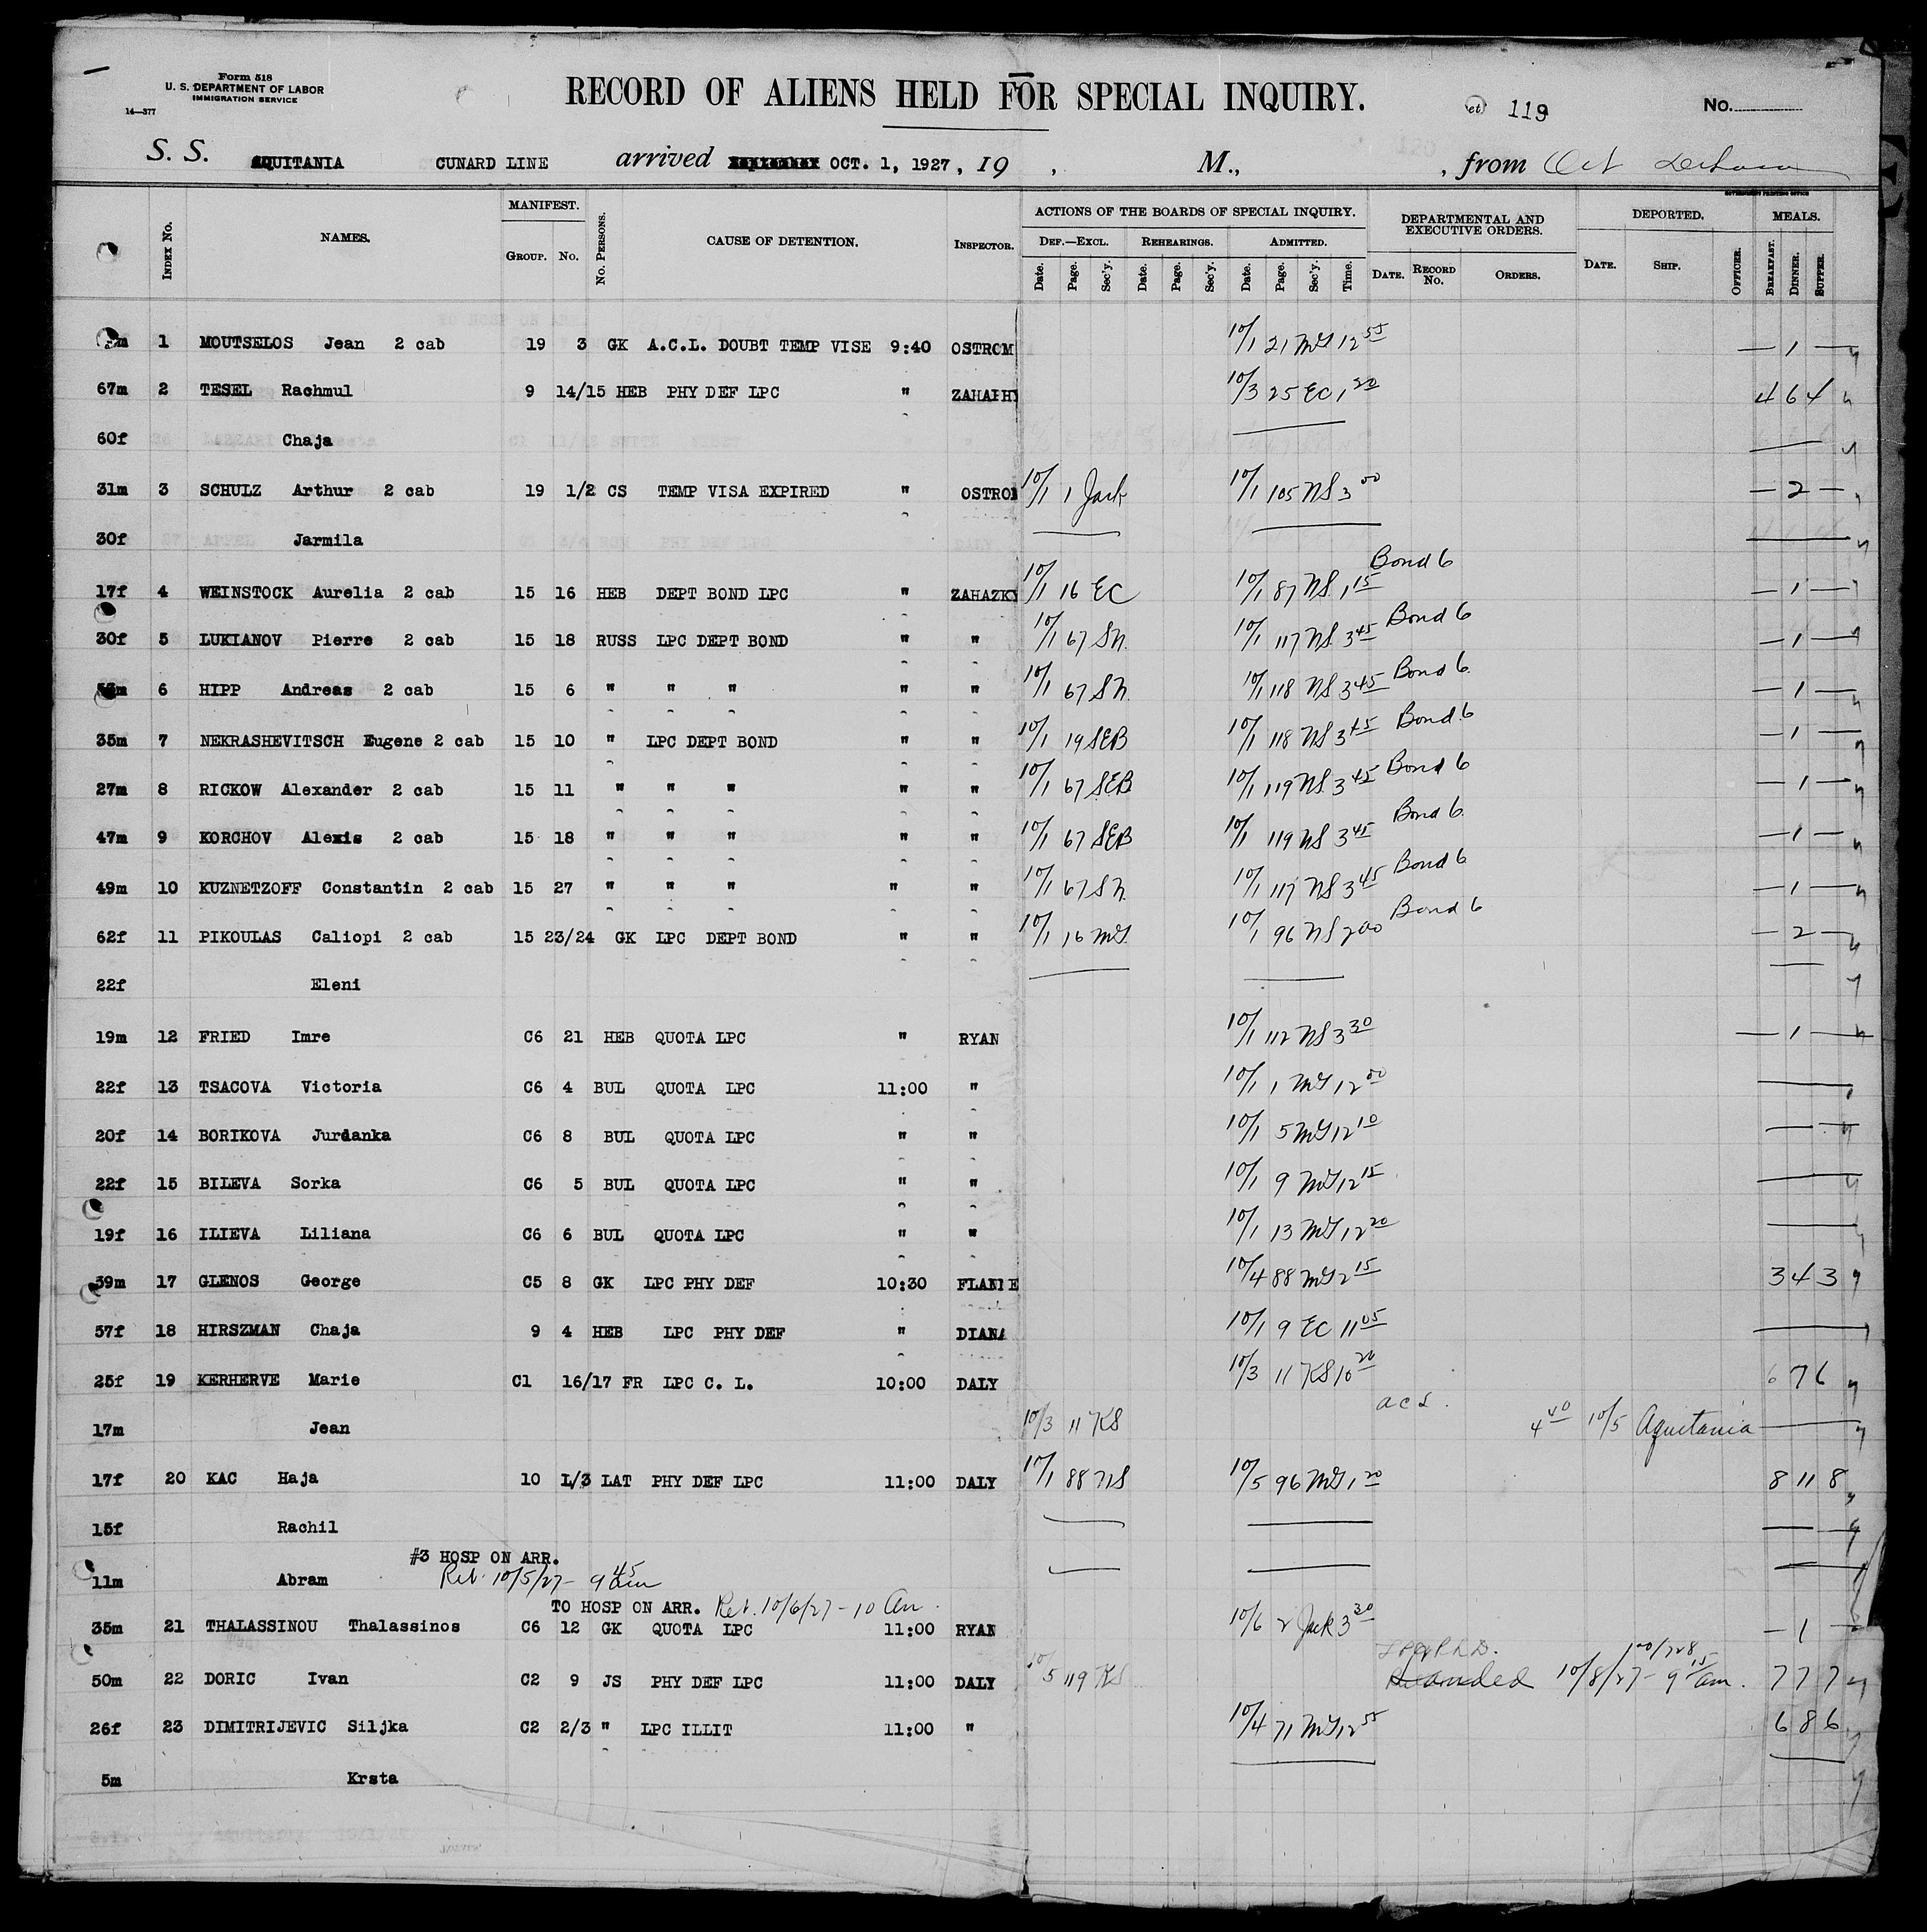 Form 518
U. S. DEPARTMENT OF LABOR
IMMIGRATION SERVICE
14—377
RECORD OF ALIENS HELD FOR SPECIAL INQUIRY.
119 No.
S. S. AQUITANIA CUNARD LINE arrived OCT. 1, 1927, 19 , M., , from
GOVERNMENT PRINTING OFFICE
INDEX No. NAMES. MANIFEST. GROUP. No. No. PERSONS. CAUSE OF DETENTION. INSPECTOR. ACTIONS OF THE BOARDS OF SPECIAL INQUIRY. DEPARTMENTAL AND EXECUTIVE ORDERS. DEPORTED. MEALS.
DEF.—EXCL. REHEARINGS. ADMITTED.
Date. Page. Sec'y. Date. Page. Sec'y. Date. Page. Sec'y. Time. DATE. RECORD No. ORDERS. DATE. SHIP. OFFICER. BREAKFAST. DINNER. SUPPER.
1 MOUTSELOS Jean 2 cab 19 3 GK A.C.L. DOUBT TEMP VISE 9:40 OSTROM 10/1 21 MG 12 55 — 1 —
67m 2 TESEL Rachmul 9 14/15 HEB PHY DEF LPC " 10/3 25 EC 1 20 4 6 4
60f Chaja
31m 3 SCHULZ Arthur 2 cab 19 1/2 CS TEMP VISA EXPIRED " OSTROM 10/1 1 Jack 10/1 105 NS 3 00 — 2 —
30f Jarmila
17f 4 WEINSTOCK Aurelia 2 cab 15 16 HEB DEPT BOND LPC " ZAHAZKY 10/1 16 EC 10/1 87 NS 1 15 Bond 6 — 1 —
30f 5 LUKIANOV Pierre 2 cab 15 18 RUSS LPC DEPT BOND " " 10/1 67 SN. 10/1 117 NS 3 45 Bond 6 — 1 —
6 HIPP Andreas 2 cab 15 6 " " " " " 10/1 67 SN. 10/1 118 NS 3 45 Bond 6 — 1 —
35m 7 NEKRASHEVITSCH Eugene 2 cab 15 10 " LPC DEPT BOND " " 10/1 19 SEB 10/1 118 NS 3 45 Bond 6 — 1 —
27m 8 RICKOW Alexander 2 cab 15 11 " " " " " 10/1 67 SEB 10/1 119 NS 3 45 Bond 6 — 1 —
47m 9 KORCHOV Alexis 2 cab 15 18 " " " " " 10/1 67 SEB 10/1 119 NS 3 45 Bond 6 — 1 —
49m 10 KUZNETZOFF Constantin 2 cab 15 27 " " " " " 10/1 67 SN. 10/1 117 NS 3 45 Bond 6 — 1 —
62f 11 PIKOULAS Caliopi 2 cab 15 23/24 GK LPC DEPT BOND " " 10/1 16 MG. 10/1 96 NS 2 00 Bond 6 — 2 —
22f Eleni
19m 12 FRIED Imre C6 21 HEB QUOTA LPC " RYAN 10/1 112 NS 3 30 — 1 —
22f 13 TSACOVA Victoria C6 4 BUL QUOTA LPC 11:00 " 10/1 1 MG 12 00
20f 14 BORIKOVA Jurdanka C6 8 BUL QUOTA LPC " " 10/1 5 MG 12 10
22f 15 BILEVA Sorka C6 5 BUL QUOTA LPC " " 10/1 9 MG 12 15
19f 16 ILIEVA Liliana C6 6 BUL QUOTA LPC " " 10/1 13 MG 12 20
39m 17 GLENOS George C5 8 GK LPC PHY DEF 10:30 10/4 88 MG 2 15 3 4 3
57f 18 HIRSZMAN Chaja 9 4 HEB LPC PHY DEF " DIANA 10/1 9 EC 11 05
25f 19 KERHERVE Marie C1 16/17 FR LPC C. L. 10:00 DALY 10/3 11 KS 10 20 6 7 6
17m Jean 10/3 11 KS acl. 4 40 10/5 Aquitania
17f 20 KAC Haja 10 1/3 LAT PHY DEF LPC 11:00 DALY 10/1 88 NS 10/5 96 MG 1 20 8 11 8
15f Rachil
#3 HOSP ON ARR.
11m Abram Ret. 10/5/27 - 9 45 am
TO HOSP ON ARR. Ret. 10/6/27 - 10 Am.
35m 21 THALASSINOU Thalassinos C6 12 GK QUOTA LPC 11:00 RYAN 10/6 2 Jack 3 30 — 1 —
50m 22 DORIC Ivan C2 9 JS PHY DEF LPC 11:00 DALY 10/5 119 KS 10/8/27 - 9 15 am. 7 7 7
26f 23 DIMITRIJEVIC Siljka C2 2/3 " LPC ILLIT 11:00 " 10/4 71 MG 12 55 6 8 6
5m Krsta